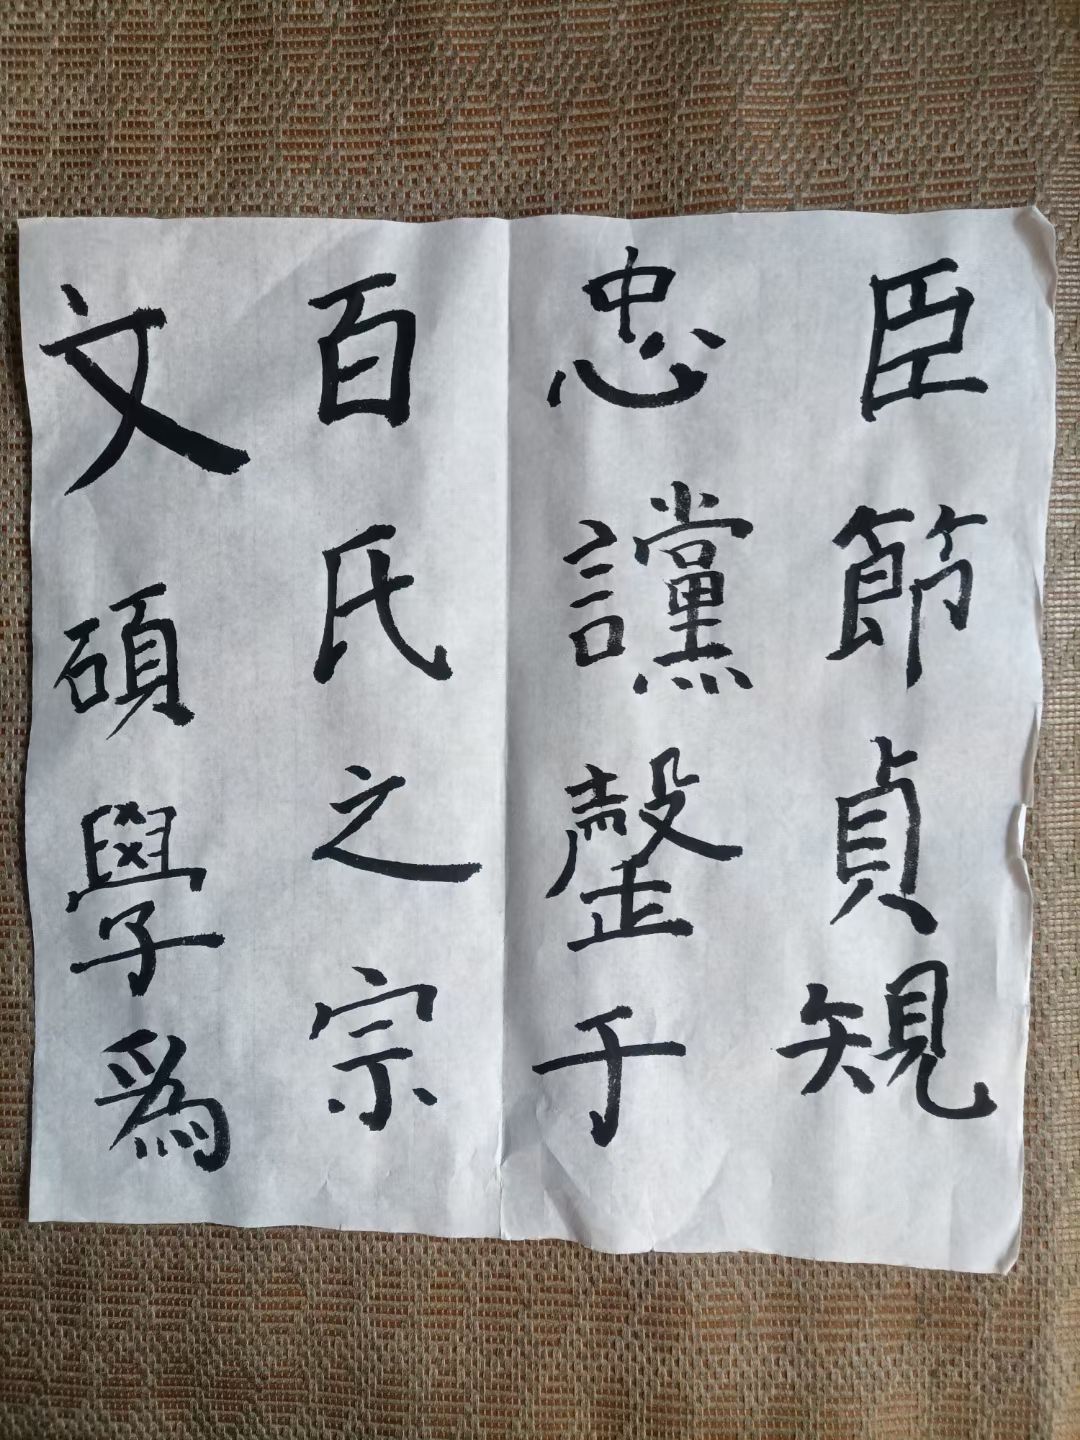 文碩學爲
百氏之宗
忠讜罄于
臣節貞䂓